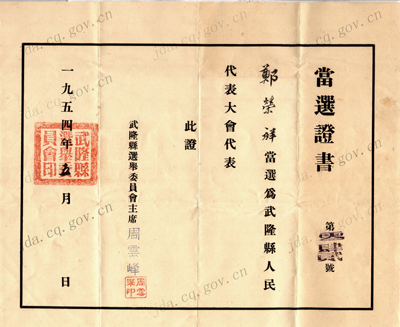 當選證書
第 肆 號
鄭榮祥當選爲武隆縣人民
代表大會代表
此證
武隆縣選舉委員會主席 周雲峰
周雲峰印
一九五四年 月 日
武隆縣選舉委員會印
jda.cq.gov.cn
jda.cq.gov.cn
jda.cq.gov.cn
jda.cq.gov.cn